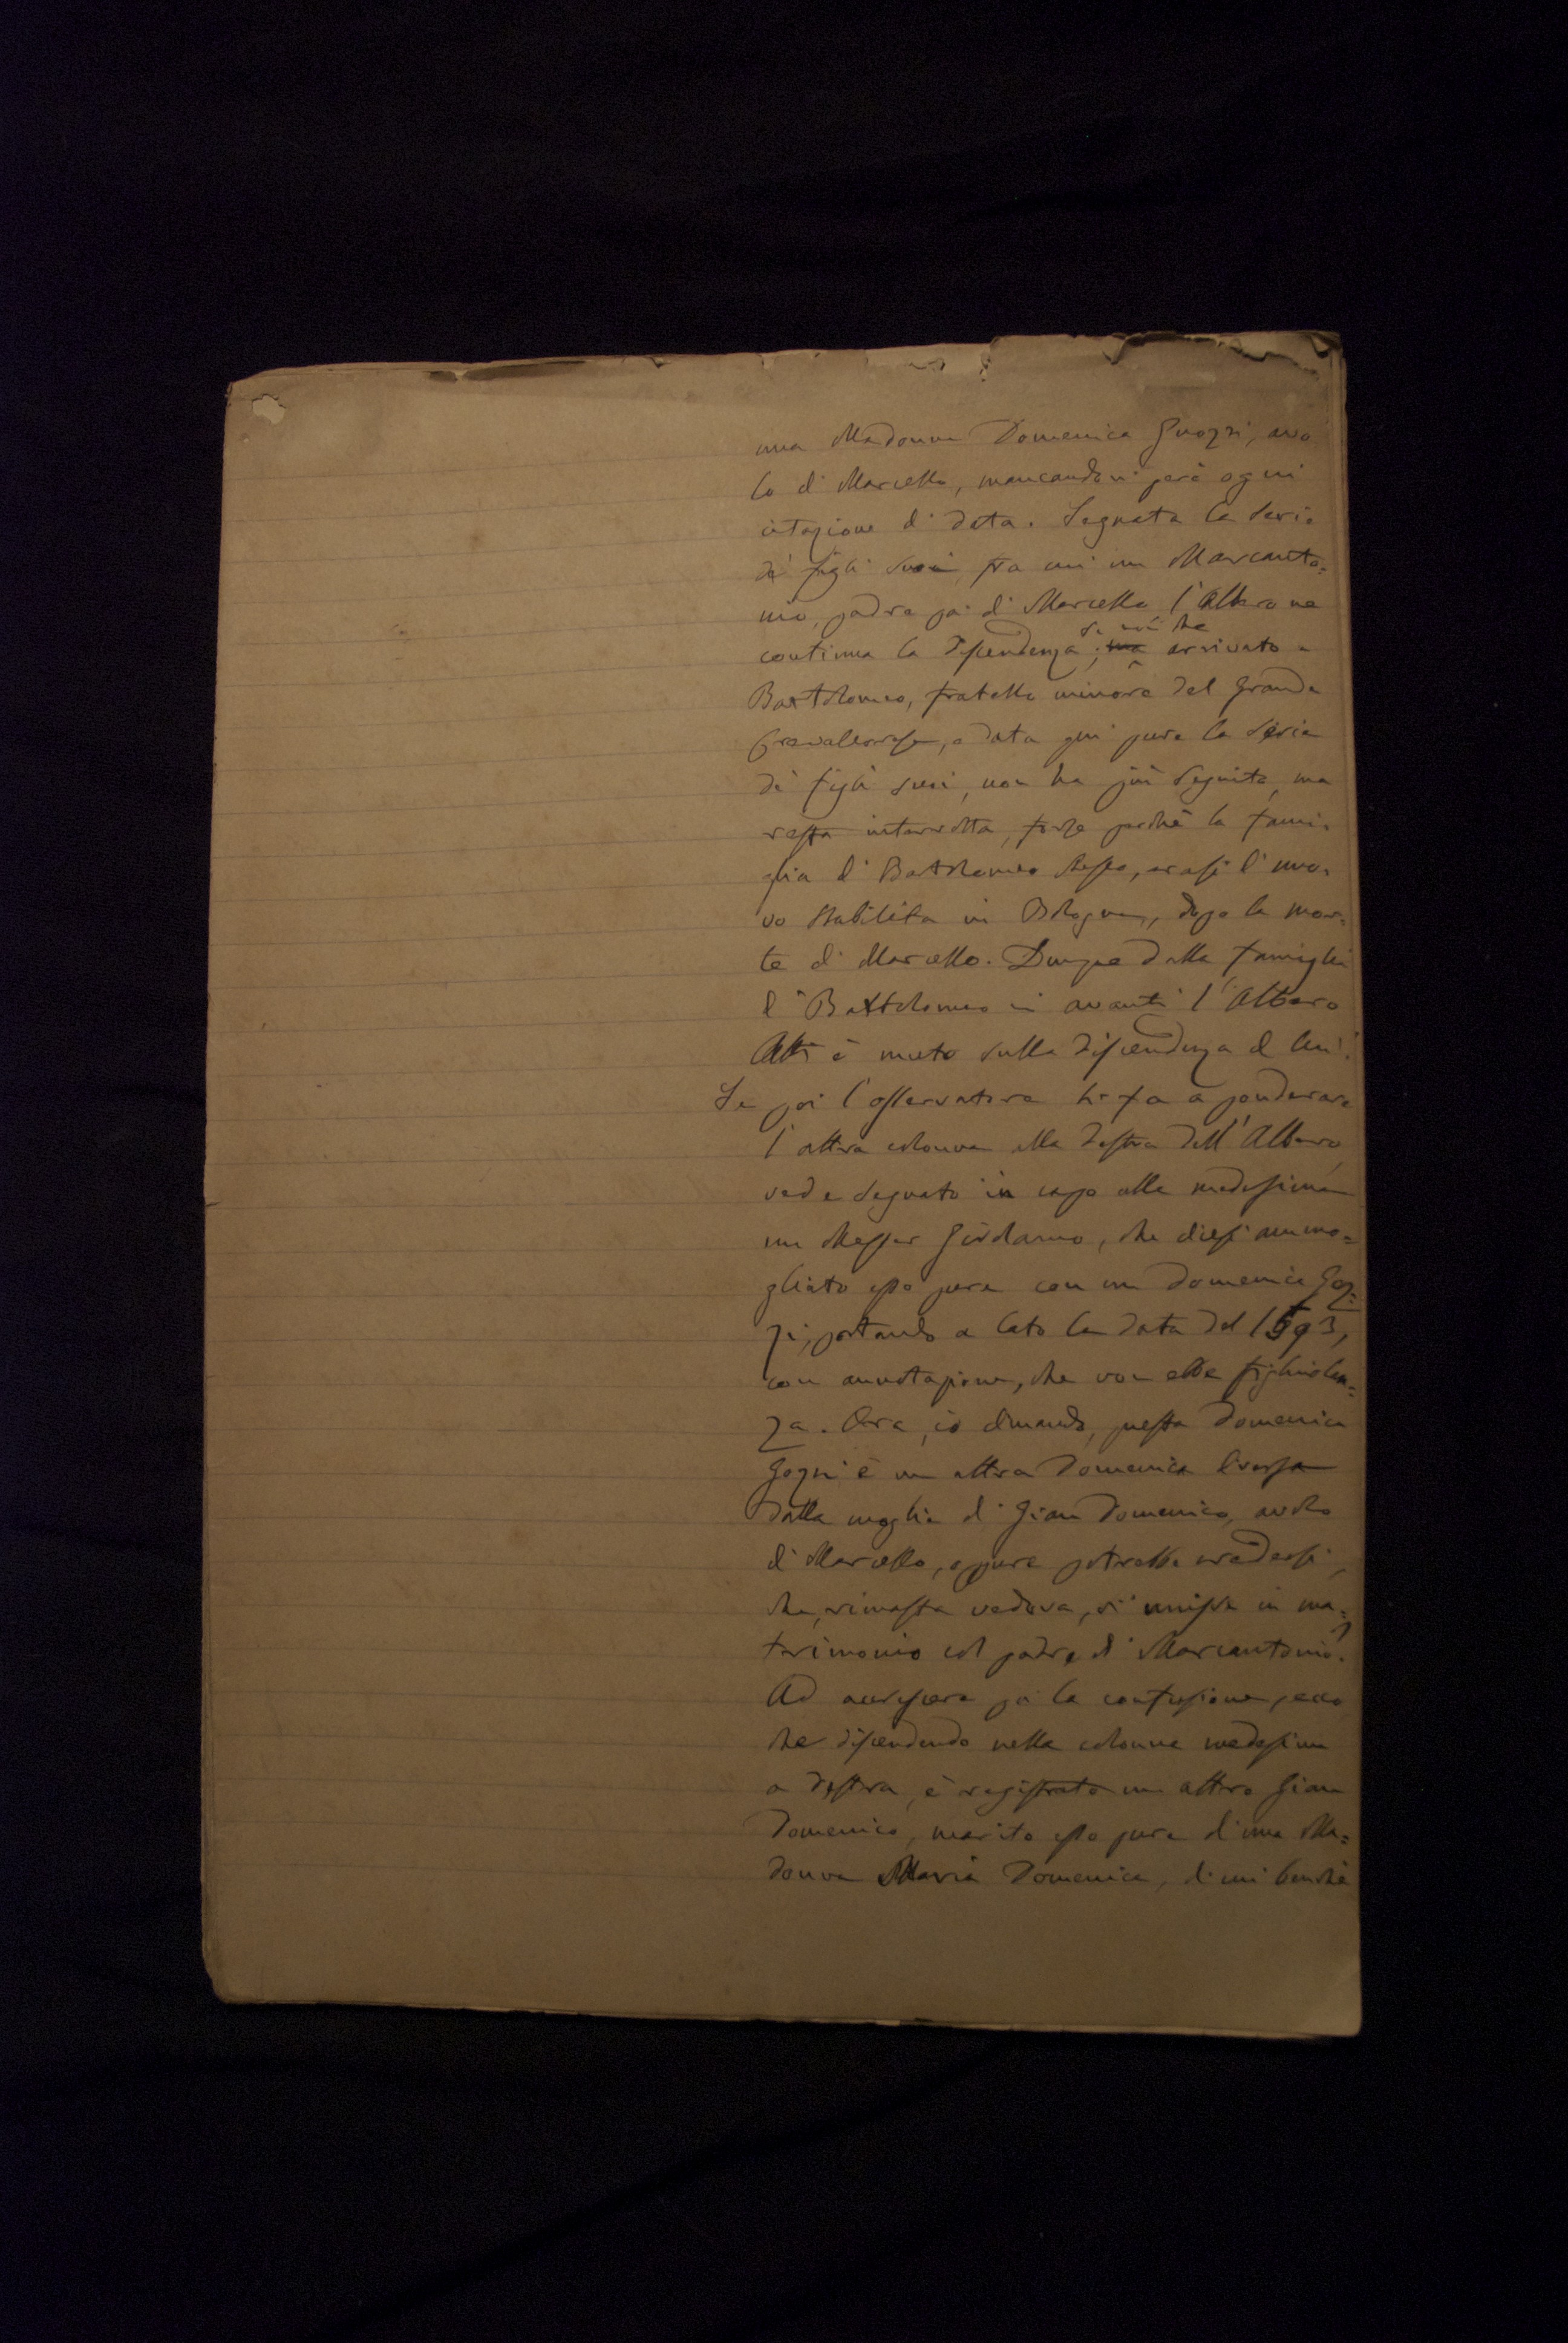 una Madonna Domenica Gnozzi, avo
lo di Marcello, mancandovi però ogni
citazione di data. Segnata la serie
de' figli suoi, fra cui un Marcanto=
nio, padre poi di Marcello, l'Albero ne
continua la discendenza; se non che arrivato a
Bartolomeo, fratello minore del grande
Crevalcorese, e data qui pure la serie
dei figli suoi, non ha più seguito, ma
resta interrotta, forse perchè la fami=
glia di Bartolomeo stesso, erasi di nuo=
vo stabilita in Bologna, dopo la mor=
te di Marcello. Dunque dalla famiglia
di Bartolomeo in avanti l'Albero
Atti è muto sulla discendenza di lui.
Se poi l'osservatore si fa a ponderare
l'altra colonna alla destra dell'Albero,
vede segnato in capo alla medesima
un Messer Girolamo, che dicesi ammo=
gliato esso pure con una Domenica Goz=
zi, portando a lato la data del 1593,
con annotazione, che non ebbe figliuolan=
za. Ora, io dimando, questa Domenica
Gozzi è un altra Domenica diversa
dalla moglie di Gian Domenico, avolo
di Marcello, oppure potrebbe credersi,
che, rimasta vedova, si unisse in ma=
trimonio col padre di Marcantonio?
Ad accrescere poi la confusione, ecco
che discendendo nella colonna medesima
a destra, è registrato un altro Gian
Domenico, marito esso pure di una Ma=
donna Maria Domenica, di cui benchè